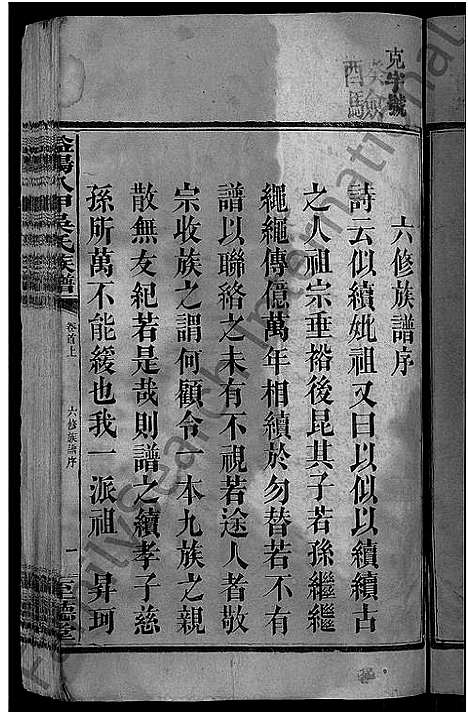 克字號
癸酉
驗
六修族譜序
詩云似續妣祖又曰以似以續續古
之人祖宗垂裕後昆其子若孫繼繼
繩繩傳億萬年相續於勿替若不有
譜以聯絡之未有不視若途人者敬
宗收族之謂何顧令一本九族之親
散無友紀若是哉則譜之續孝子慈
孫所萬不能緩也我一派祖昇珂
益陽八甲吳氏族譜
卷首上
六修族譜序
一
至德堂
FamilySearch International